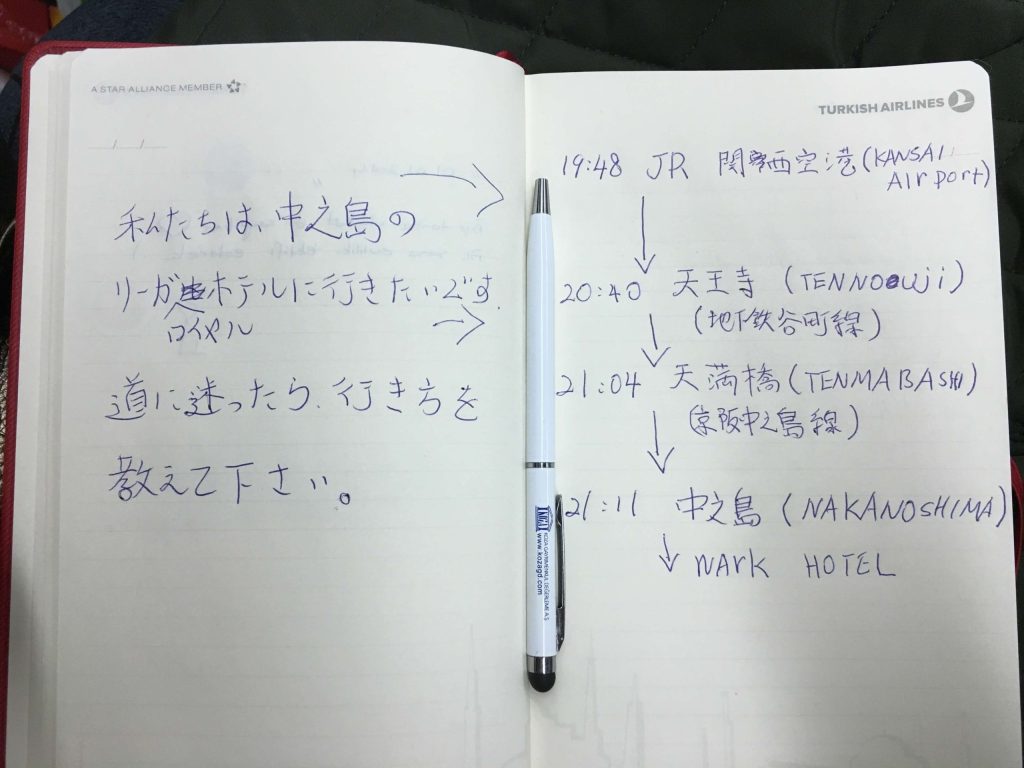 A STAR ALLIANCE MEMBER
私たちは、中之島の
リーガホテルに行きたいです。
ロイヤル
道に迷ったら、行き方を
教えて下さい。
TURKISH AIRLINES
19:48 JR 関西空港 (KANSAI
AIrport)
20:40 天王寺 (TENNOUji)
(地下鉄谷町線)
21:04 天満橋 (TENMABASHI)
(京阪中之島線)
21:11 中之島 (NAKANOSHIMA)
wArk HOTEL
KOZA GAYRİMENKUL DEĞERLEME A.Ş.
www.kozagd.com